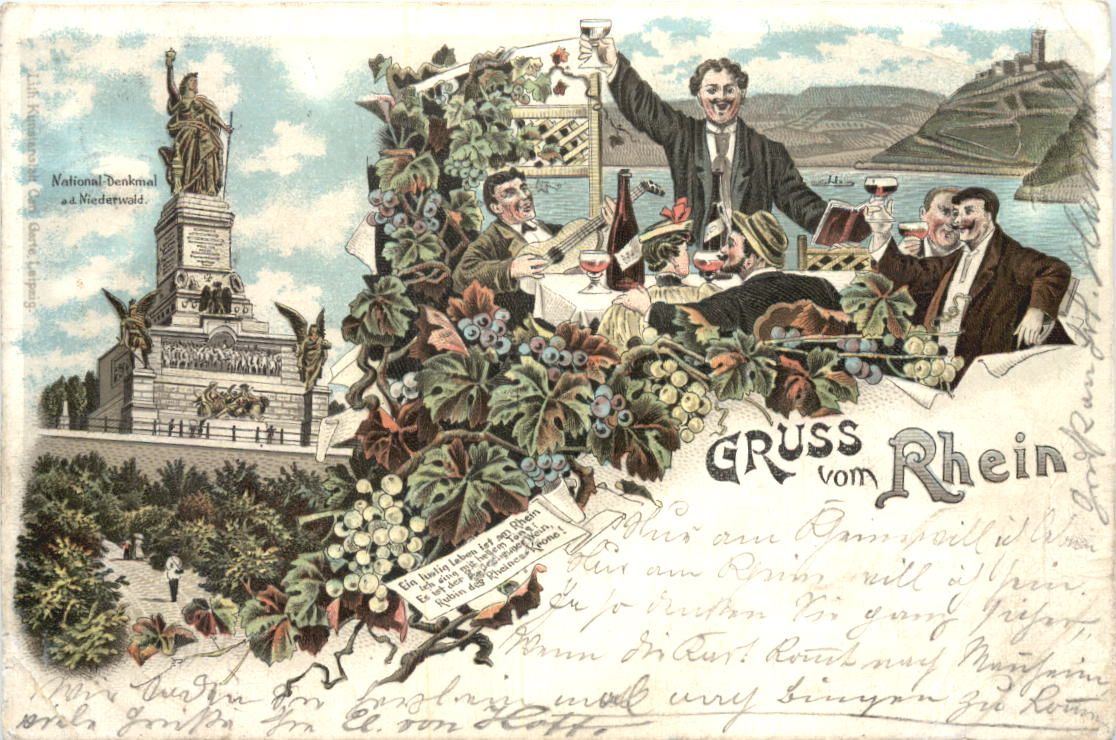 National-Denkmal
a.d. Niederwald.
Lith. Kunstanst. Carl Garte, Leipzig
GRUSS
vom Rhein
Ein lustig Leben ist am Rhein
Ich sing mit hellem Tone:
Es ist der gesegnete Wein,
Rubin des Rheines Krone!
Nur am Rhein will ich leben
Nur am Rhein will ich sein.
Ja so denken Sie ganz sicher,
Wenn die kommt nach Manheim
Wir laden Sie mal nach Bingen zu kommen
viele Grüße Ihr El. von Hoff.